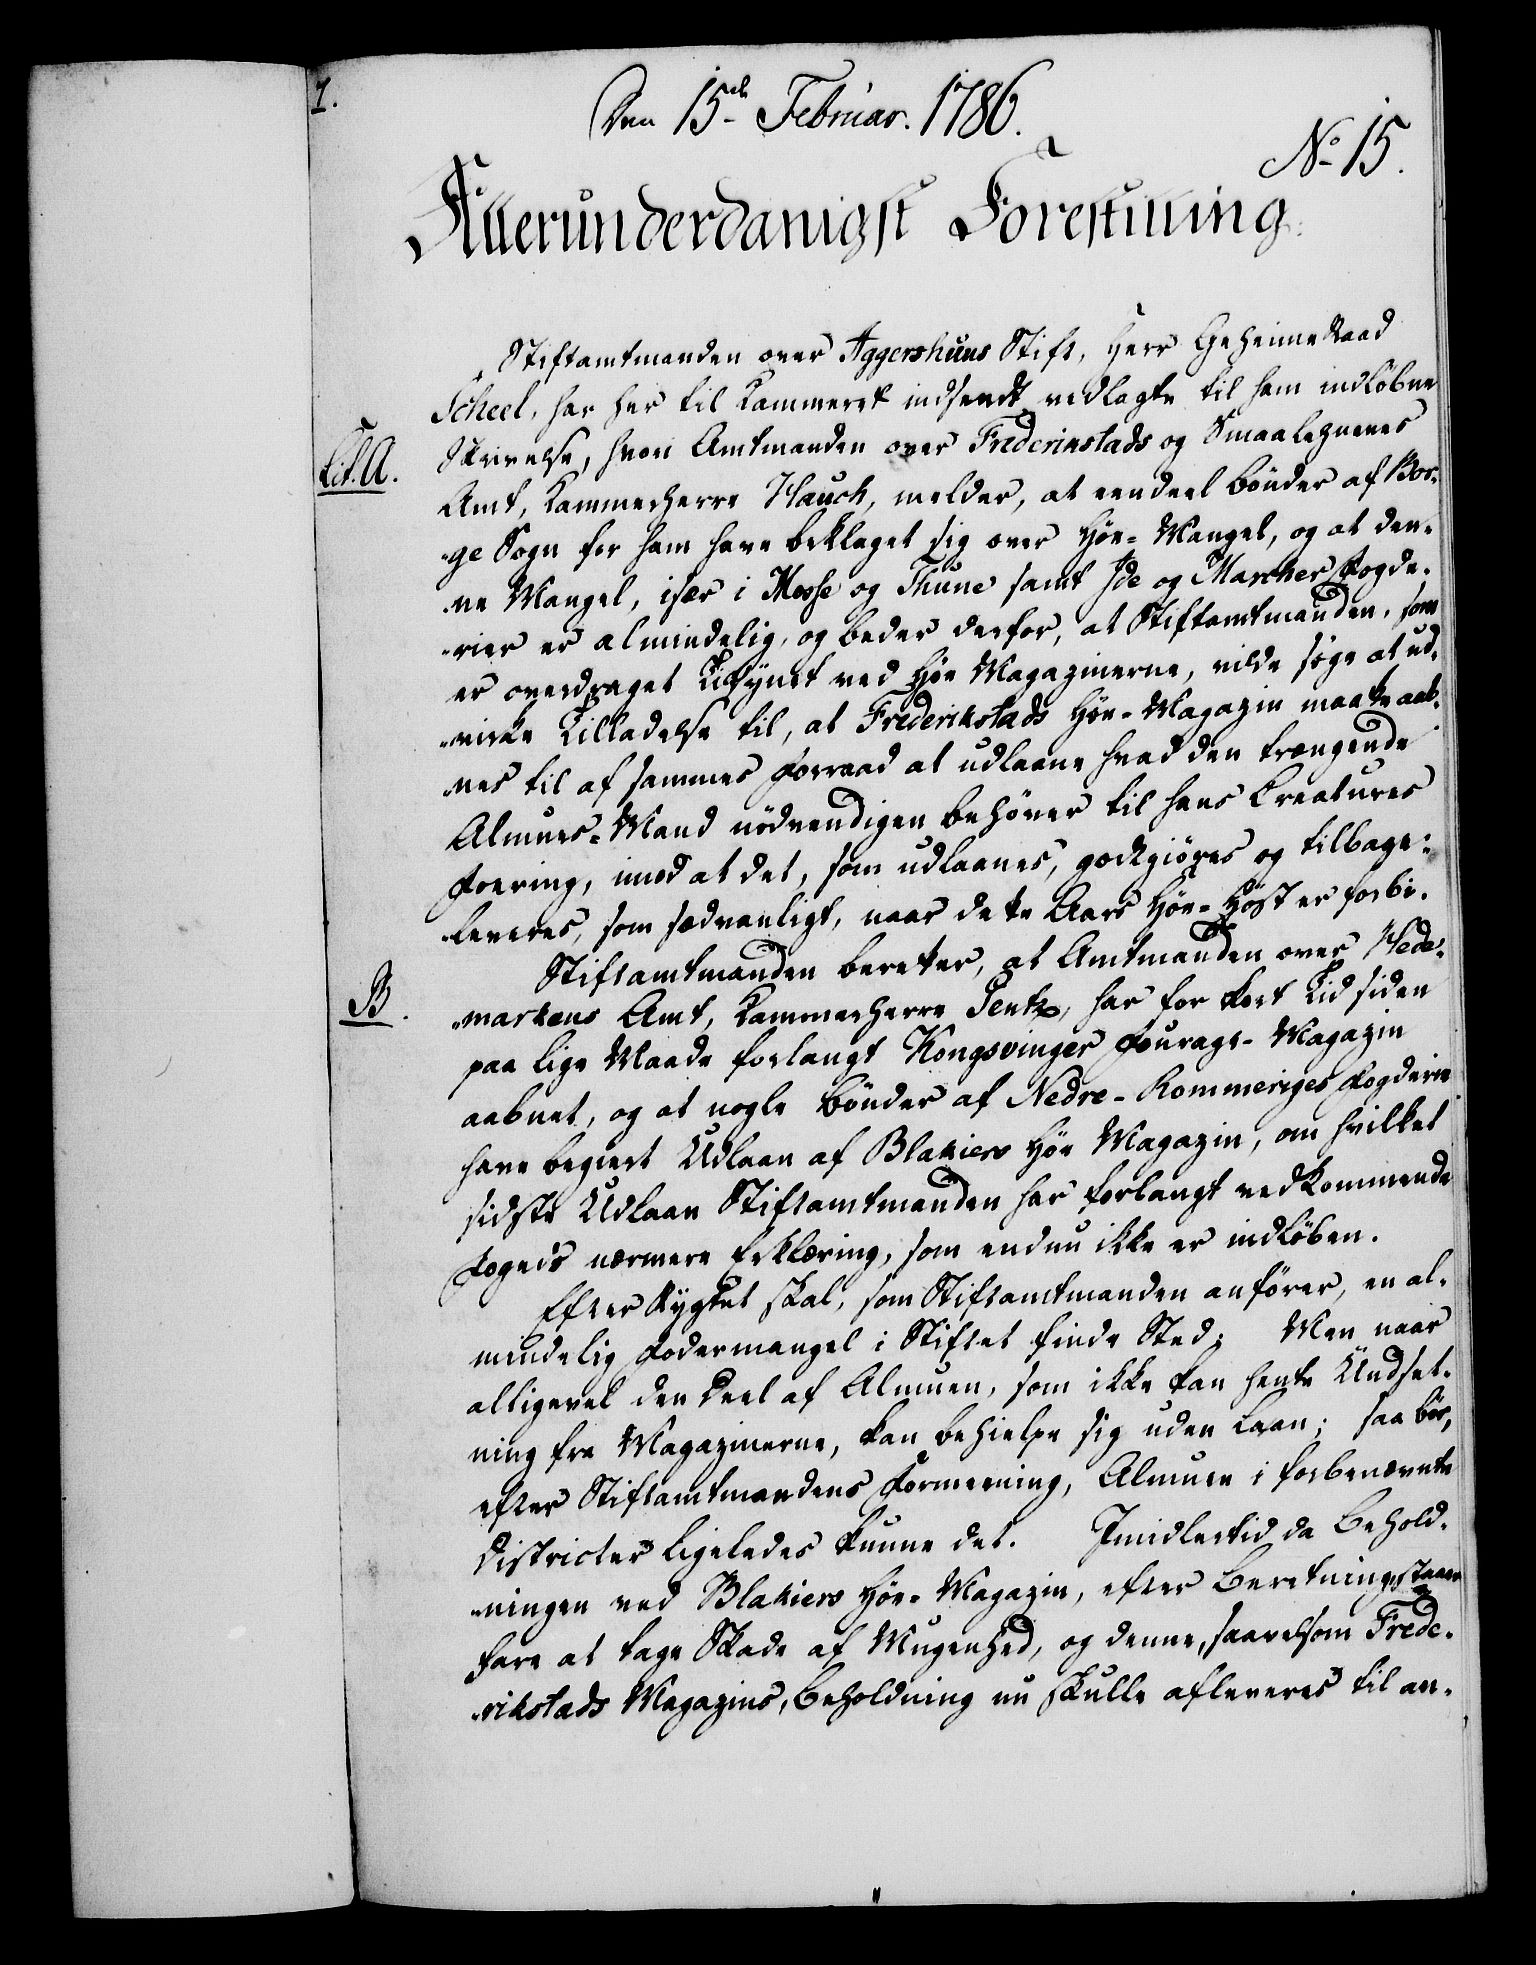 1.
Den 15de Februar. 1786.
No. 15.
Allerunderdanigst Forestilling.
Stiftamtmanden over Aggershuus Stift, Herr GeheimeRaad
Scheel, har her til Kammeret indsendt vedlagte til ham indløbne
Lit. A.
Skrivelse, hvori Amtmanden over Frederikstads og Smaalehnenes
Amt, Kammerherre Hauch, melder, at eendeel Bønder af Bor-
ge Sogn for ham have beklaget sig over Høe-Mangel, og at den-
ne Mangel, især i Mosse og Thune samt Ide og Marcher Fogde-
rier er almindelig, og beder derfor, at Stiftamtmanden, som
er overdraget Tilsynet ved Høe Magazinerne, vilde søge at ud-
virke Tilladelse til, at Frederikstads Høe-Magazin maatte aab-
nes til af sammes Forraad at udlaane hvad den trængende
Almues-Mand nødvendigen behøver til hans Creatures
Foering, imod at det, som udlaanes, godtgiøres og tilbage-
leveres, som sædvanligt, naar dette Aars Høe-Høst er forbi.
Stiftamtmanden beretter, at Amtmanden over Hede-
B.
markens Amt, Kammerherre Sentz, har for kort Tid siden
paa lige Maade forlangt Kongsvinger Fourage-Magazin
aabnet, og at nogle Bønder af Nedre-Rommeriges Fogderie
have begiert Udlaan af Blakiers Høe Magazin, om hvilket
sidste Udlaan Stiftamtmanden har forlangt vedkommende
Fogeds nærmere Erklæring, som endnu ikke er indløben.
Efter Rygtet skal, som Stiftamtmanden anfører, en al-
mindelig Fodermangel i Stiftet finde Sted; Men naar
alligevel den Deel af Almuen, som ikke kan hente Undsæt-
ning fra Magazinerne, kan behielpe sig uden Laan; saa bør,
efter Stiftamtmandens Formeening, Almuen i forbenævnte
Districter ligeledes kunne det. Imidlertid da Behold-
ningen ved Blakiers Høe-Magazin, efter Beretning, staaer
Fare at tage Skade af Mugenhed, og denne, saavelsom Frede-
rikstads Magazins, Beholdning nu skulle afleveres til an-